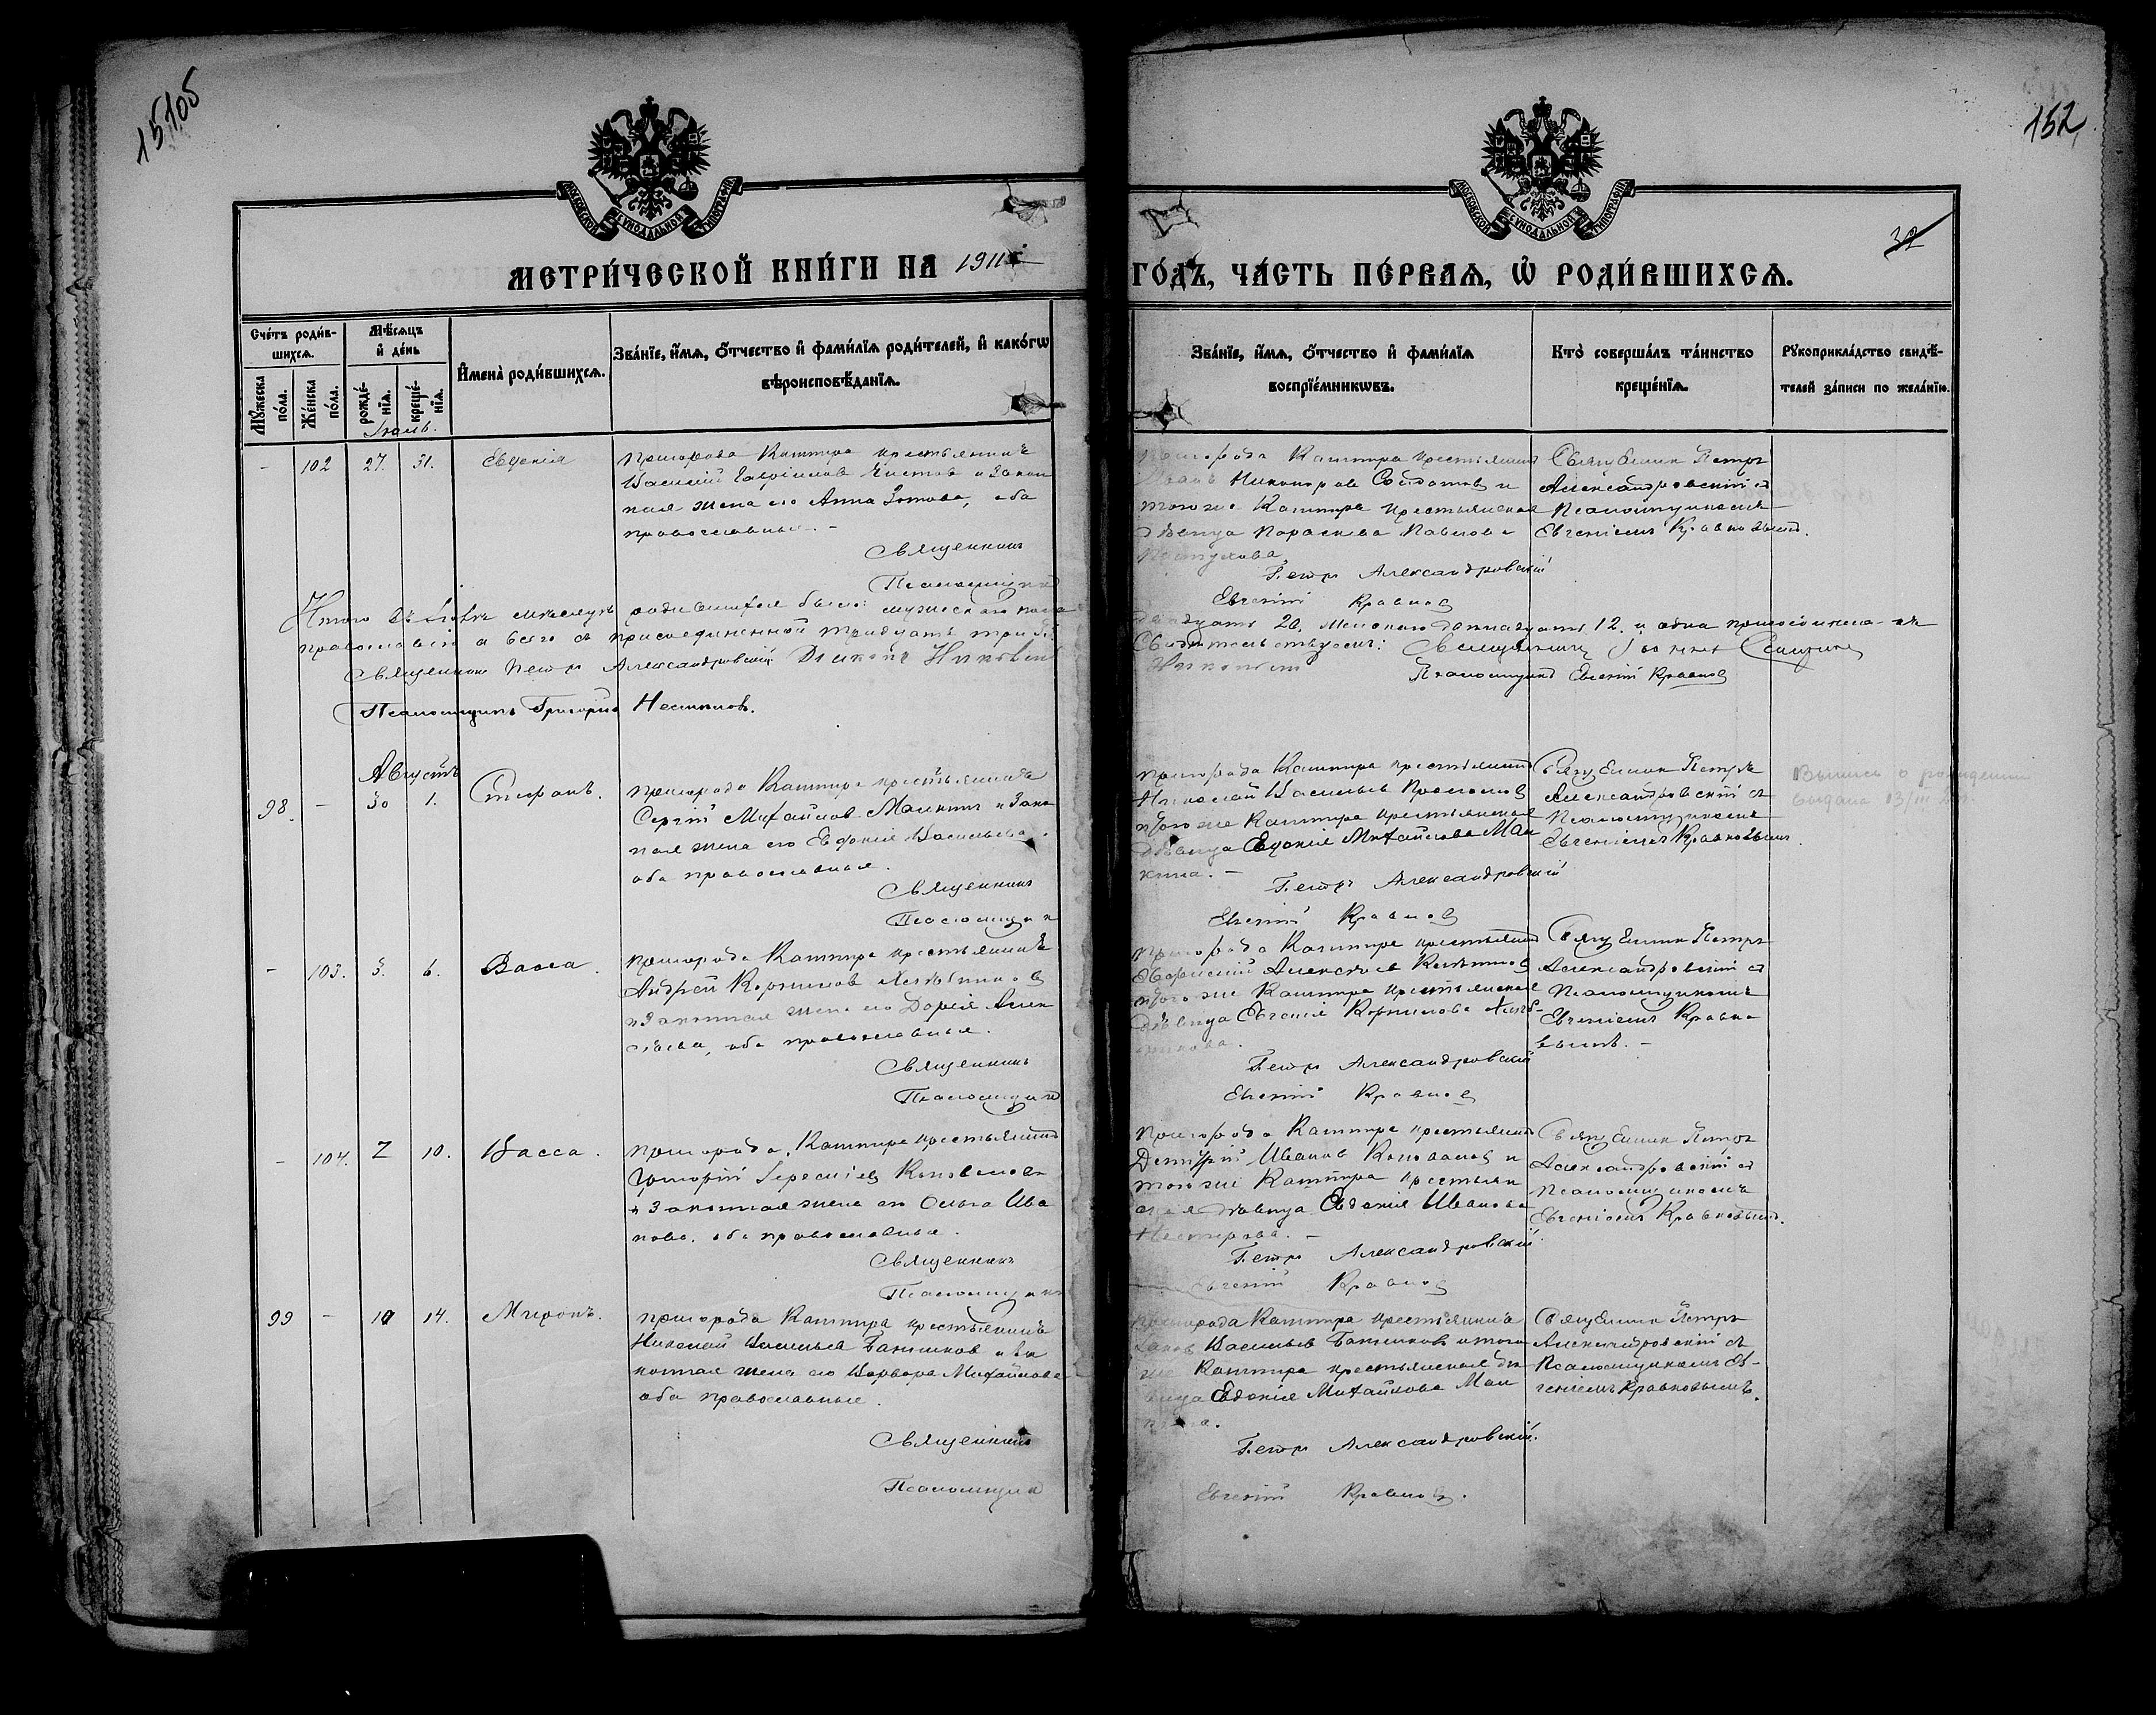 15105
152
32
МОСКОВСКОЙ СѴНОДАЛЬНОЙ ТИПОГРАФІИ
МОСКОВСКОЙ СѴНОДАЛЬНОЙ ТИПОГРАФІИ
МЕТРИ́ЧЕСКОЙ КНИ́ГИ НА 1911
ГО́ДЪ, ЧА́СТЬ ПЕ́РВАѦ, Ѡ҆ РОДИ́ВШИХСѦ.
Сче́тъ роди́в-
шихсѧ.
Мꙋ́жеска по́ла.
Же́нска по́ла.
Мѣ́сѧцъ и҆ де́нь
рожде́-нїѧ.
креще́-нїѧ.
И҆мена̀ роди́вшихсѧ.
Зва́нїе, и҆́мѧ, ѻ҆́тчество и҆ фами́лїѧ роди́телей, и҆ како́гѡ
вѣроисповѣ́данїѧ.
Зва́нїе, и҆́мѧ, ѻ҆́тчество и҆ фами́лїѧ
воспрїе́мникѡвъ.
Кто̀ соверша́лъ та́инство
креще́нїѧ.
Рꙋкоприкла́дство свидѣ́-
телей за́писи по жела́нїю.
Іюль.
- 102 27. 31. Евгенія
пригорода Каттира крестьянинъ
Василій Гавріиловъ Чистовъ и закон
ная жена его Анна Зотова, оба
православные. -
Священникъ
Псаломщикъ
пригорода Каттира крестьянинъ
Иванъ Никаноровъ и
того же Каттира крестьянская
дѣвица Параскева Павлова
Петръ Александровскій
Евгеній Кравковъ
Священник Петръ
Александровскій съ
Псаломщикомъ
Евгеніемъ Кравковымъ.
Итого въ Іюлѣ мѣсяцѣ родившихся было: мужескаго пола
двадцать 20, женскаго двѣнадцать 12 и одна присоединена къ
православію а всего съ присоединенной тридцать три 33.
Свидѣтельствуемъ: Священникъ Іоаннъ
Священникъ Петръ Александровскій Діаконъ
Псаломщикъ Евгеній Кравковъ
Псаломщикъ Григорій
Августъ
98. - 30 1. Стефанъ.
пригорода Каттира крестьянинъ
Сергій Михайловъ Малкинъ и зако
ная жена его Евдокія Васильева
оба православные.
Священникъ
Псаломщикъ
пригорода Каттира крестьянинъ
Николай Васильевъ и
того же Каттира крестьянская
дѣвица Евдокія Михайлова Мал
кина. -
Петръ Александровскій
Евгеній Кравковъ
Священник Петръ
Александровскій съ
Псаломщикомъ
Евгеніемъ Кравковымъ.
Выпись о рождении
выдана 13/III
- 103. 3. 6. Васса.
пригорода Каттира крестьянинъ
Андрей Корниловъ
и законная жена его Дарія Алек
сѣева, оба православные.
Священникъ
Псаломщикъ
пригорода Каттира крестьянинъ
Алексѣевъ
того же Каттира крестьянская
дѣвица Евгенія Корнилова
Петръ Александровскій
Евгеній Кравковъ
Священник Петръ
Александровскій съ
Псаломщикомъ
Евгеніемъ Кравко
вымъ. -
- 104. 7 10. Васса.
пригорода Каттира крестьянинъ
Григорій Коновалов
и законная жена его Ольга Ива
нова, оба православные.
Священникъ
Псаломщикъ
пригорода Каттира крестьянинъ
Димитрій Ивановъ Коноваловъ и
того же Каттира крестьян
ская дѣвица Евдокія Иванова
Петръ Александровскій
Евгеній Кравковъ
Священник Петръ
Александровскій съ
Псаломщикомъ
Евгеніемъ Кравковымъ.
99 - 10 14. Миронъ.
пригорода Каттира крестьянинъ
Николай Васильевъ Банников и за
конная жена его Варвара Михайлова
оба православные.
Священникъ
Псаломщикъ
пригорода Каттира крестьянинъ
Васильевъ Банниковъ и того
же Каттира крестьянская дѣ
вица Евдокія Михайлова Мал
кина.
Петръ Александровскій.
Евгеній Кравковъ.
Священник Петръ
Александровскій съ
Псаломщикомъ Ев-
геніемъ Кравковымъ.